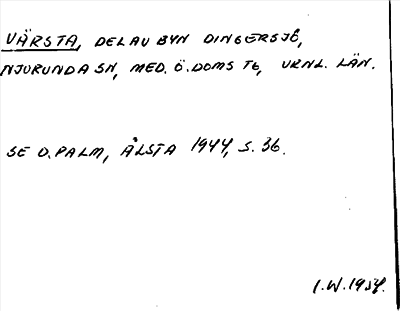 VÄRSTA, DEL AV BYN DINGERSJÖ,
NJURUNDA SN, MED. Ö. DOMS TG, VRNL. LÄN.
SE D. PALM, ÅLSTA 1944, S. 36.
I.W. 1954.